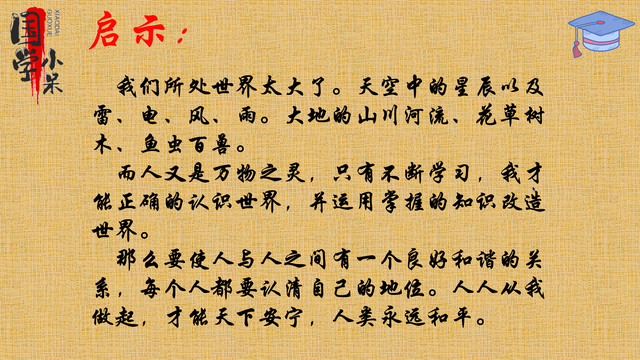 国学
小呆
XIAODAI
GUOXUE
启示：
我们所处世界太大了。天空中的星辰以及
雷、电、风、雨。大地的山川河流、花草树
木、鱼虫百兽。
而人又是万物之灵，只有不断学习，我才
能正确的认识世界，并运用掌握的知识改造
世界。
那么要使人与人之间有一个良好和谐的关
系，每个人都要认清自己的地位。人人从我
做起，才能天下安宁，人类永远和平。